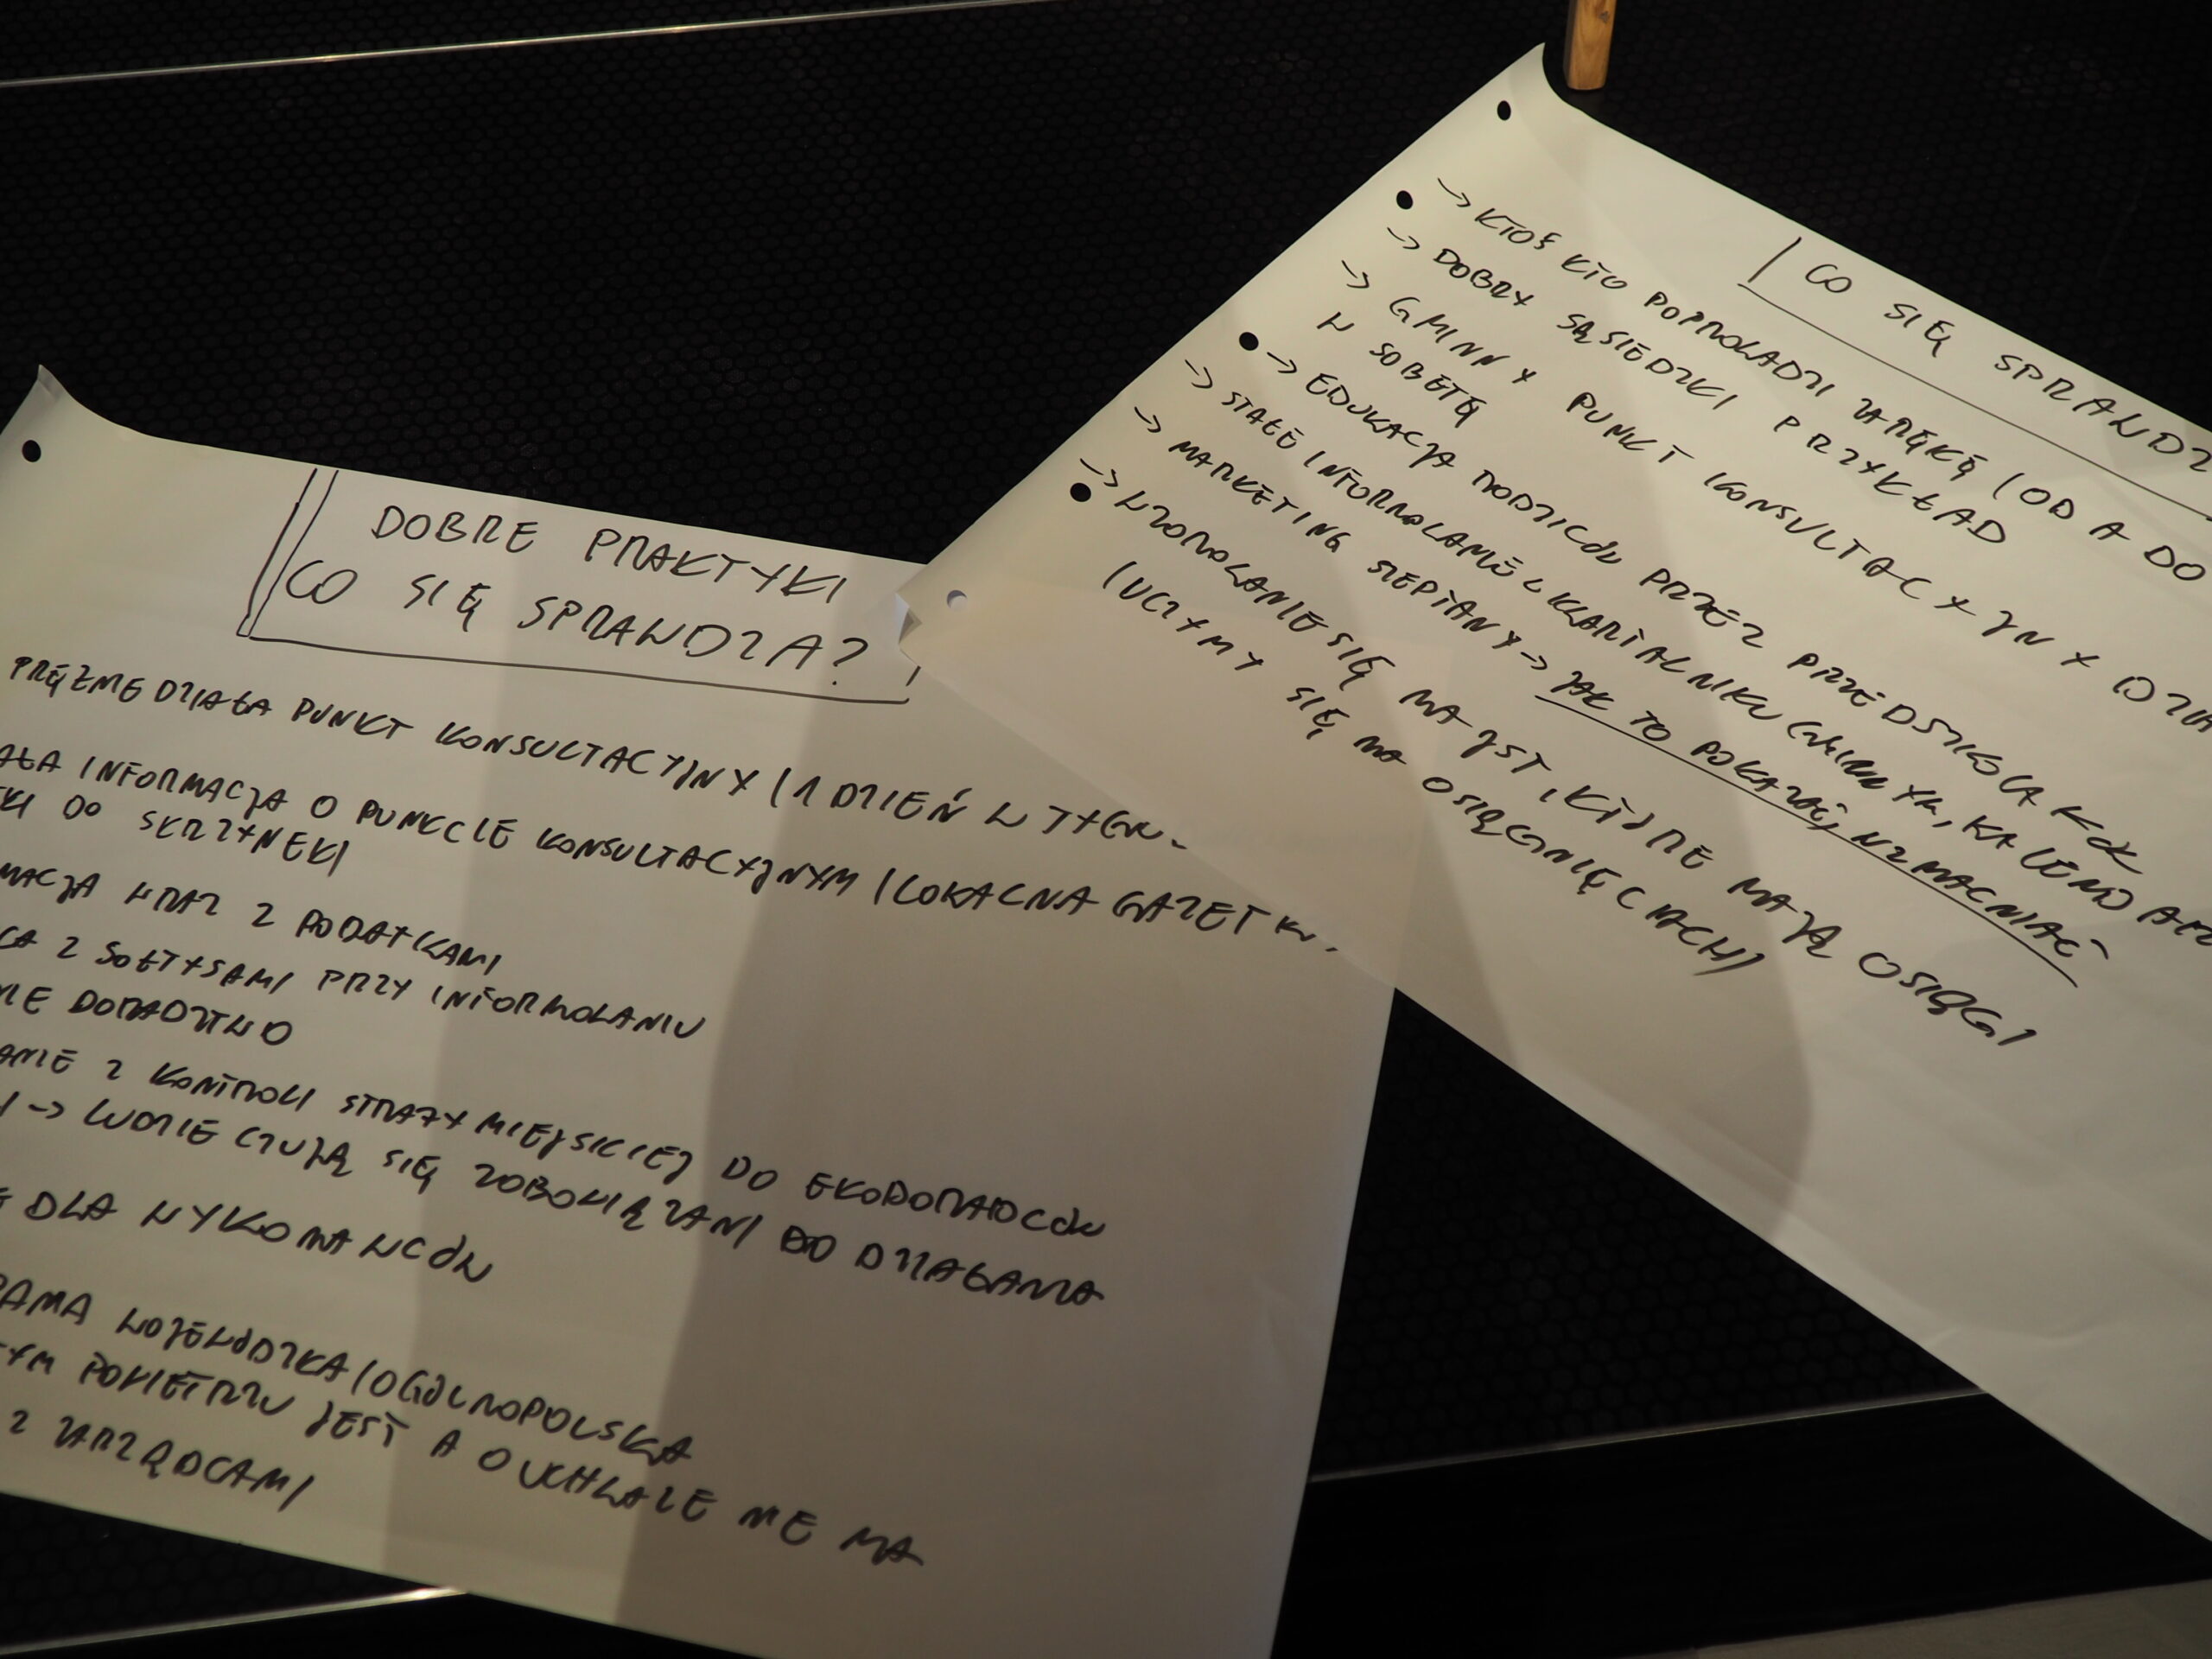 DOBRE PRAKTYKI
CO SIĘ SPRAWDZA?
PRĘŻNIE DZIAŁA PUNKT KONSULTACYJNY (1 DZIEŃ W TYGO
INFORMACJA O PUNKCIE KONSULTACYJNYM (LOKALNA GAZETKA,
DO SKRZYNEK)
WRAZ Z PODATKAMI
Z SOŁTYSAMI PRZY INFORMOWANIU
DORADZTWO
Z KONTROLI STRAŻY MIEJSKIEJ DO EKODORADCÓW
-> LUDZIE CZUJĄ SIĘ ZOBOWIĄZANI DO DZIAŁANIA
DLA WYKONAWCÓW
WOJEWÓDZKA/OGÓLNOPOLSKA
POWIETRZU JEST A O UCHWALE NIE MA
Z ZARZĄDCAMI
CO SIĘ SPRAWDZ
-> KTOŚ KTO POPROWADZI ZA RĘKĘ (OD A DO
-> DOBRY SĄSIEDZKI PRZYKŁAD
-> GMINNY PUNKT KONSULTACYJNY DZIA
W SOBOTĘ
-> EDUKACJA RODZICÓW PRZEZ PRZEDSZKOLAKÓW
-> STAŁE INFORMOWANIE W KWARTALNIKU GMINNYM, KALENDARZ
-> MARKETING SZEPTANY -> JAK TO POKAZAĆ, WZMACNIAĆ
-> WZOROWANIE SIĘ NA JST, KTÓRE MAJĄ OSIĄGI
(UCZYMY SIĘ NA OSIĄGNIĘCIACH)